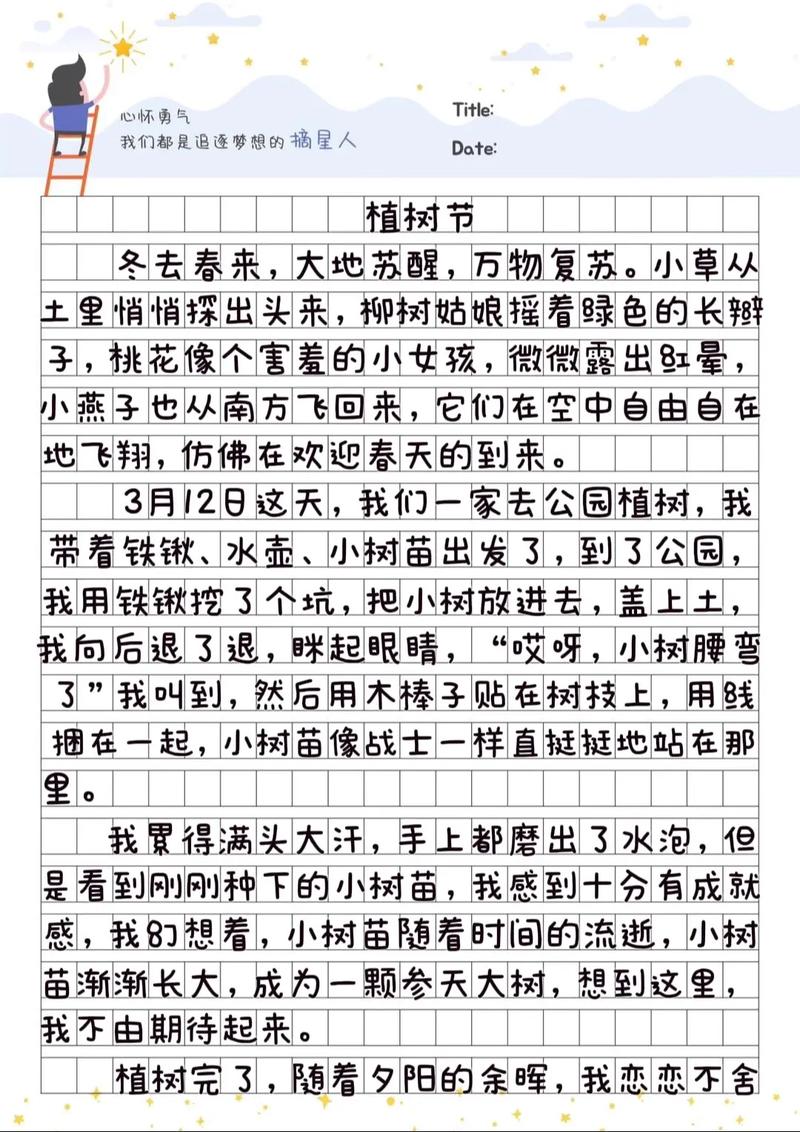 心怀勇气
我们都是追逐梦想的 摘星人
Title:
Date:
植树节
冬去春来，大地苏醒，万物复苏。小草从
土里悄悄探出头来，柳树姑娘摇着绿色的长辫
子，桃花像个害羞的小女孩，微微露出红晕，
小燕子也从南方飞回来，它们在空中自由自在
地飞翔，仿佛在欢迎春天的到来。
3月12日这天，我们一家去公园植树，我
带着铁锹、水壶、小树苗出发了，到了公园，
我用铁锹挖了个坑，把小树放进去，盖上土，
我向后退了退，眯起眼睛，“哎呀，小树腰弯
了”我叫到，然后用木棒子贴在树枝上，用线
捆在一起，小树苗像战士一样直挺挺地站在那
里。
我累得满头大汗，手上都磨出了水泡，但
是看到刚刚种下的小树苗，我感到十分有成就
感，我幻想着，小树苗随着时间的流逝，小树
苗渐渐长大，成为一颗参天大树，想到这里，
我不由期待起来。
植树完了，随着夕阳的余晖，我恋恋不舍